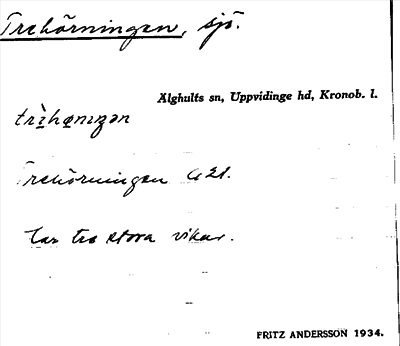 Trehörningen, sjö.
Älghults sn, Uppvidinge hd, Kronob. l.
Trehörningen G 21.
har tre stora vikar.
FRITZ ANDERSSON 1934.